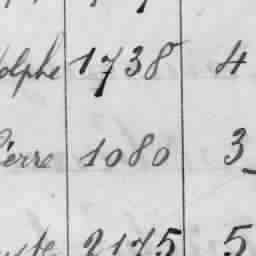 olphe 1738 4
ierre 1080 3
2175 5